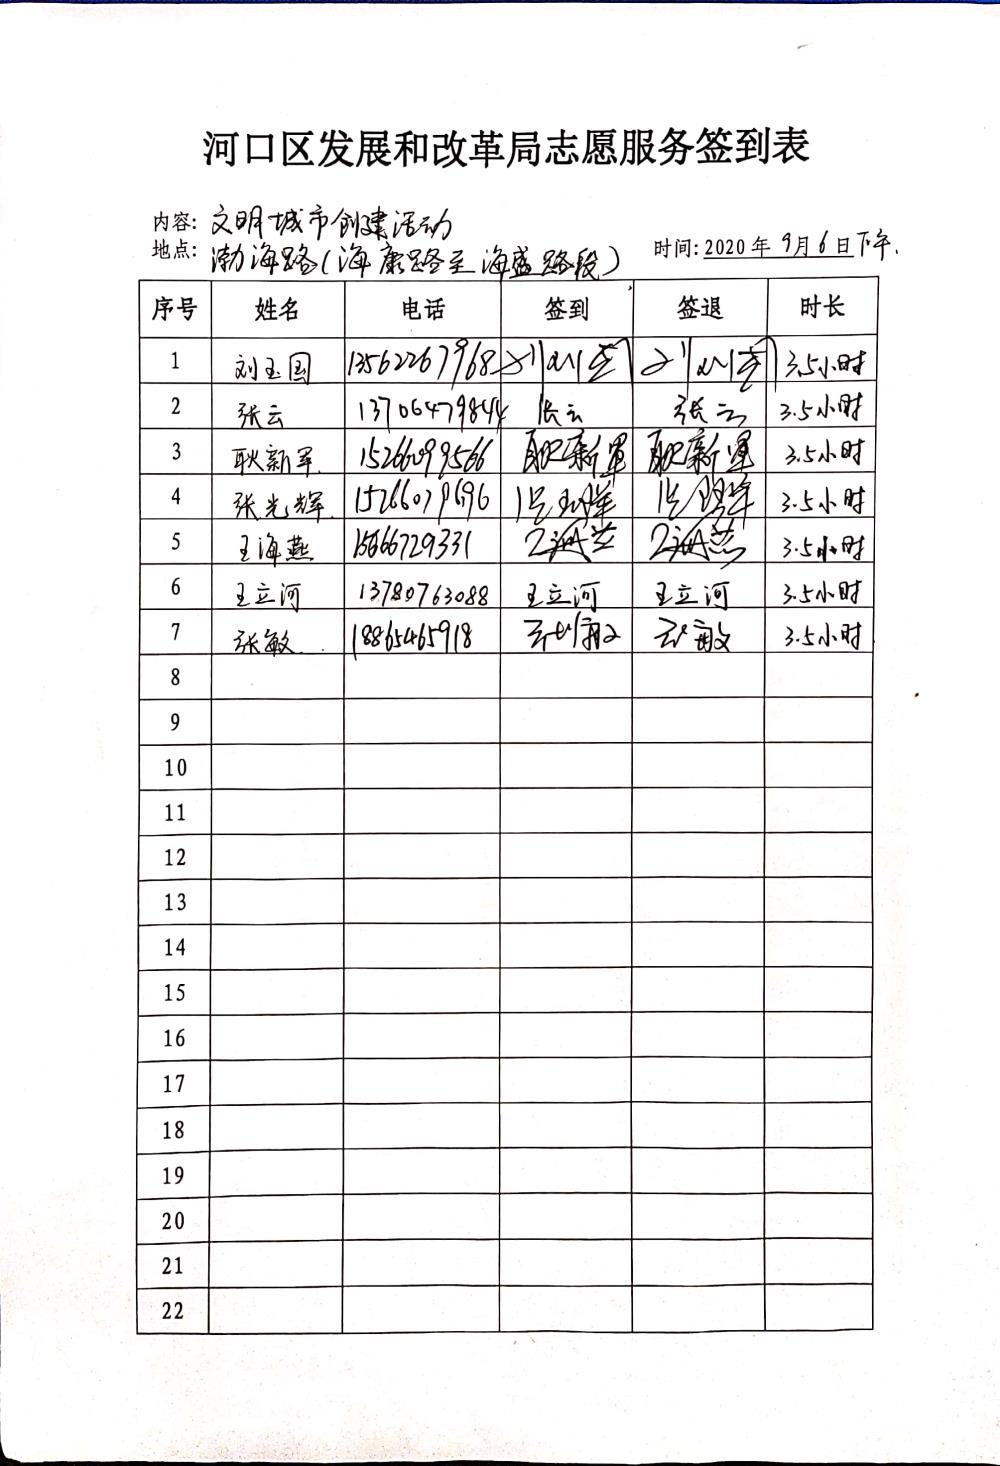 河口区发展和改革局志愿服务签到表
内容: 文明城市创建活动
地点: 渤海路(海康路至海盛路段) 时间: 2020年9月6日下午.
序号 姓名 电话 签到 签退 时长
1 刘玉国 13562267968 3.5小时
2 张云 13706479844 张云 张云 3.5小时
3 耿新军. 15266099566 耿新军 耿新军 3.5小时
4 张光辉. 15266079696 3.5小时
5 王海燕 15666729331 王海燕 王海燕 3.5小时
6 王立河 13780763088 王立河 王立河 3.5小时
7 张敏. 18865465918 张敏 张敏 3.5小时
8
9
10
11
12
13
14
15
16
17
18
19
20
21
22